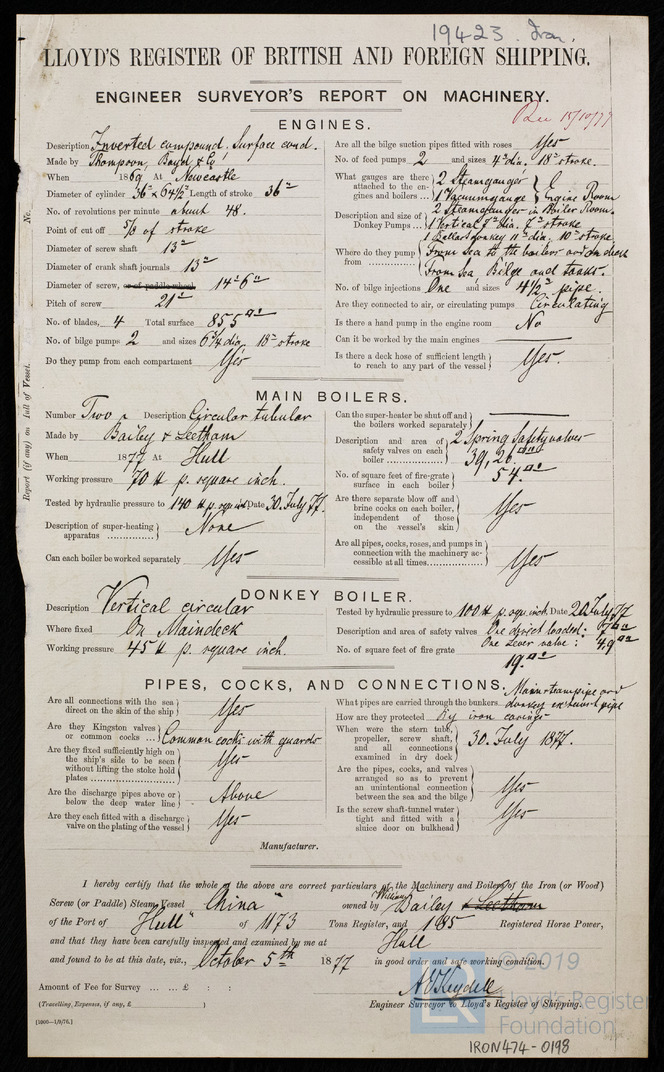 19423. Iron.
LLOYD'S REGISTER OF BRITISH AND FOREIGN SHIPPING.
ENGINEER SURVEYOR'S REPORT ON MACHINERY.
Rec 15/10/77
No.
Report (if any) on Hull of Vessel.
ENGINES.
Description Inverted compound. Surface cond.
Made by Thompson, Boyd & Co
When 1869 At Newcastle
Diameter of cylinder 36" x 64½" Length of stroke 36"
No. of revolutions per minute about 48.
Point of cut off 5/8 of stroke
Diameter of screw shaft 13"
Diameter of crank shaft journals 13"
Diameter of screw, or of paddle wheel 14"6"
Pitch of screw 21"
No. of blades, 4 Total surface 855
No. of bilge pumps 2 and sizes 6¾ dia. 18" stroke
Do they pump from each compartment Yes
Are all the bilge suction pipes fitted with roses Yes
No. of feed pumps 2 and sizes 4" dia. 18" stroke.
What gauges are there attached to the engines and boilers ... 2 Steamgauges 1 Vacuumgauge Engine Room
2 Steamgauges in Boiler Room.
Description and size of Donkey Pumps ... 1 Vertical 7" dia. 7" stroke
1 Ballast donkey 11" dia. 10" stroke
Where do they pump from From Sea to the boilers and on deck
From Sea Bilge and tanks.
No. of bilge injections One and sizes 4½" pipe.
Are they connected to air, or circulating pumps Circulating
Is there a hand pump in the engine room No
Can it be worked by the main engines
Is there a deck hose of sufficient length to reach to any part of the vessel Yes.
MAIN BOILERS.
Number Two Description Circular tubular
Made by Bailey & Leetham
When 1877 At Hull
Working pressure 70 lb p. square inch.
Tested by hydraulic pressure to 140 lb p. sq. in. Date 30. July 77.
Description of super-heating apparatus ... None
Can each boiler be worked separately Yes
Can the super-heater be shut off and the boilers worked separately
Description and area of safety valves on each boiler ... 2 Spring Safety valves
39,26
No. of square feet of fire-grate surface in each boiler 54
Are there separate blow off and brine cocks on each boiler, independent of those on the vessel's skin Yes
Are all pipes, cocks, roses, and pumps in connection with the machinery accessible at all times ... Yes
DONKEY BOILER.
Description Vertical circular
Where fixed On Maindeck
Working pressure 45 lb p. square inch.
Tested by hydraulic pressure to 100 lb p. squ. inch. Date 20 July 77
Description and area of safety valves One direct loaded:
One Lever valve: 4,9
No. of square feet of fire grate 19
PIPES, COCKS, AND CONNECTIONS.
Are all connections with the sea direct on the skin of the ship Yes
Are they Kingston valves or common cocks ... Common cocks with guards
Are they fixed sufficiently high on the ship's side to be seen without lifting the stoke hold plates ... Yes
Are the discharge pipes above or below the deep water line Above
Are they each fitted with a discharge valve on the plating of the vessel Yes
What pipes are carried through the bunkers Main steam pipe and donkey exhaust pipe
How are they protected By iron casings
When were the stern tube, propeller, screw shaft, and all connections examined in dry dock 30. July 1877.
Are the pipes, cocks, and valves arranged so as to prevent an unintentional connection between the sea and the bilge Yes
Is the screw shaft-tunnel water tight and fitted with a sluice door on bulkhead Yes
Manufacturer.
I hereby certify that the whole of the above are correct particulars of the Machinery and Boilers of the Iron (or Wood)
Screw (or Paddle) Steam Vessel "China" owned by William Bailey & Leetham
of the Port of "Hull" of 1173 Tons Register, and 185 Registered Horse Power,
and that they have been carefully inspected and examined by me at Hull
and found to be at this date, viz., October 5th 1877 in good order and safe working condition.
Amount of Fee for Survey ... ... £ : :
(Travelling, Expenses, if any, £ )
Engineer Surveyor to Lloyd's Register of Shipping.
[2000—1/9/76.]
© 2019
LR
Lloyd's Register
Foundation
IRON474-0198